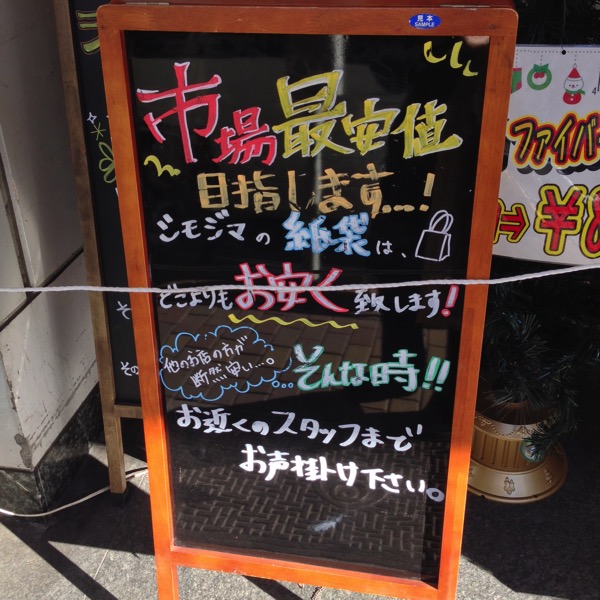 見本
SAMPLE
市場最安値
目指します…!
シモジマの紙袋は、
どこよりもお安く致します!
他のお店の方が
断然早い…。
そんな時!!
お近くのスタッフまで
お声掛け下さい。
ファイバー